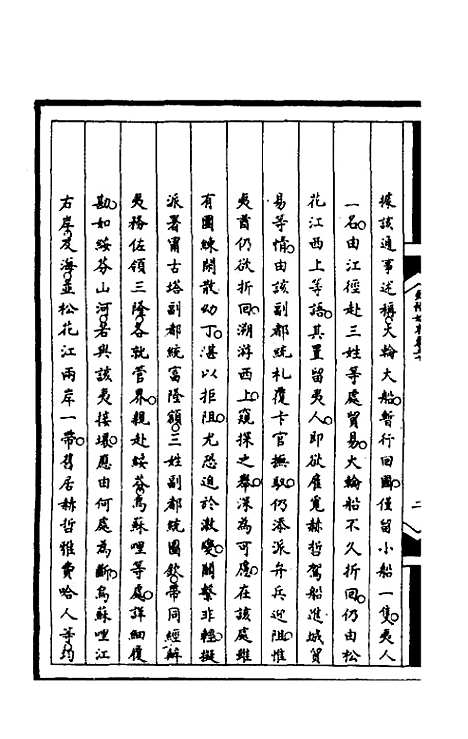 據該通事述稱○火輪大船○暫行回國○僅留小船一隻○夷人
一名○由江徑赴三姓等處貿易○火輪船不久折回○仍由松
花江西上等語○其置留夷人○即欲雇覓赫哲駕船進城貿
易等情○由該副都統札覆卡官撫馭○仍添派弁兵迎阻○惟
夷酋仍欲折回○溯游西上○窺探之舉○深為可慮○在該處雖
有團練閒散幼丁○湛以拒阻○尤恐迫於激變○關繫非輕○擬
派署甯古塔副都統富隆額○三姓副都統國欽○帶同經辦
夷務佐領三隆○各就管界○親赴綏芬○烏蘇哩等處○詳細履
勘○如綏芬山河○若與該夷接壤○應由何處為斷○烏蘇哩江
右岸○及海○並松花江兩岸一帶○舊居赫哲雅費哈人等○約
二